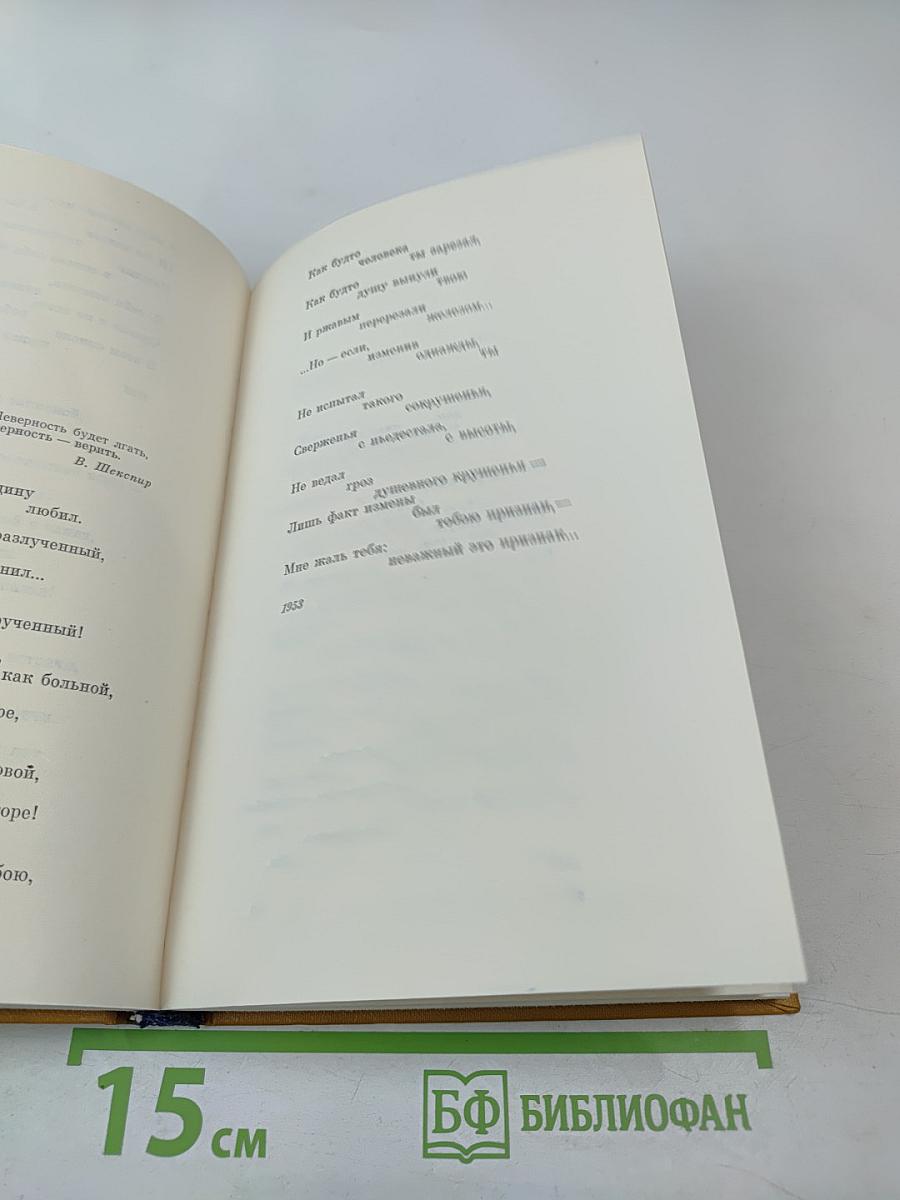 Неверность будет лгать,
верность — верить.
В. Шекспир
любил.
разлученный,
как больной,
Как будто
человека
ты зарезал,
Как будто
душу вынули
твою
И ржавым
перерезали
железом...
...Но — если,
изменив
однажды,
ты
Не испытал
такого
сокрушенья,
Сверженья
с пьедестала,
с высоты,
Не ведал
гроз
душевного крушенья —
Лишь факт измены
был
тобою признан, —
Мне жаль тебя:
неважный это признак...
1953
15 см
БФ БИБЛИОФАН